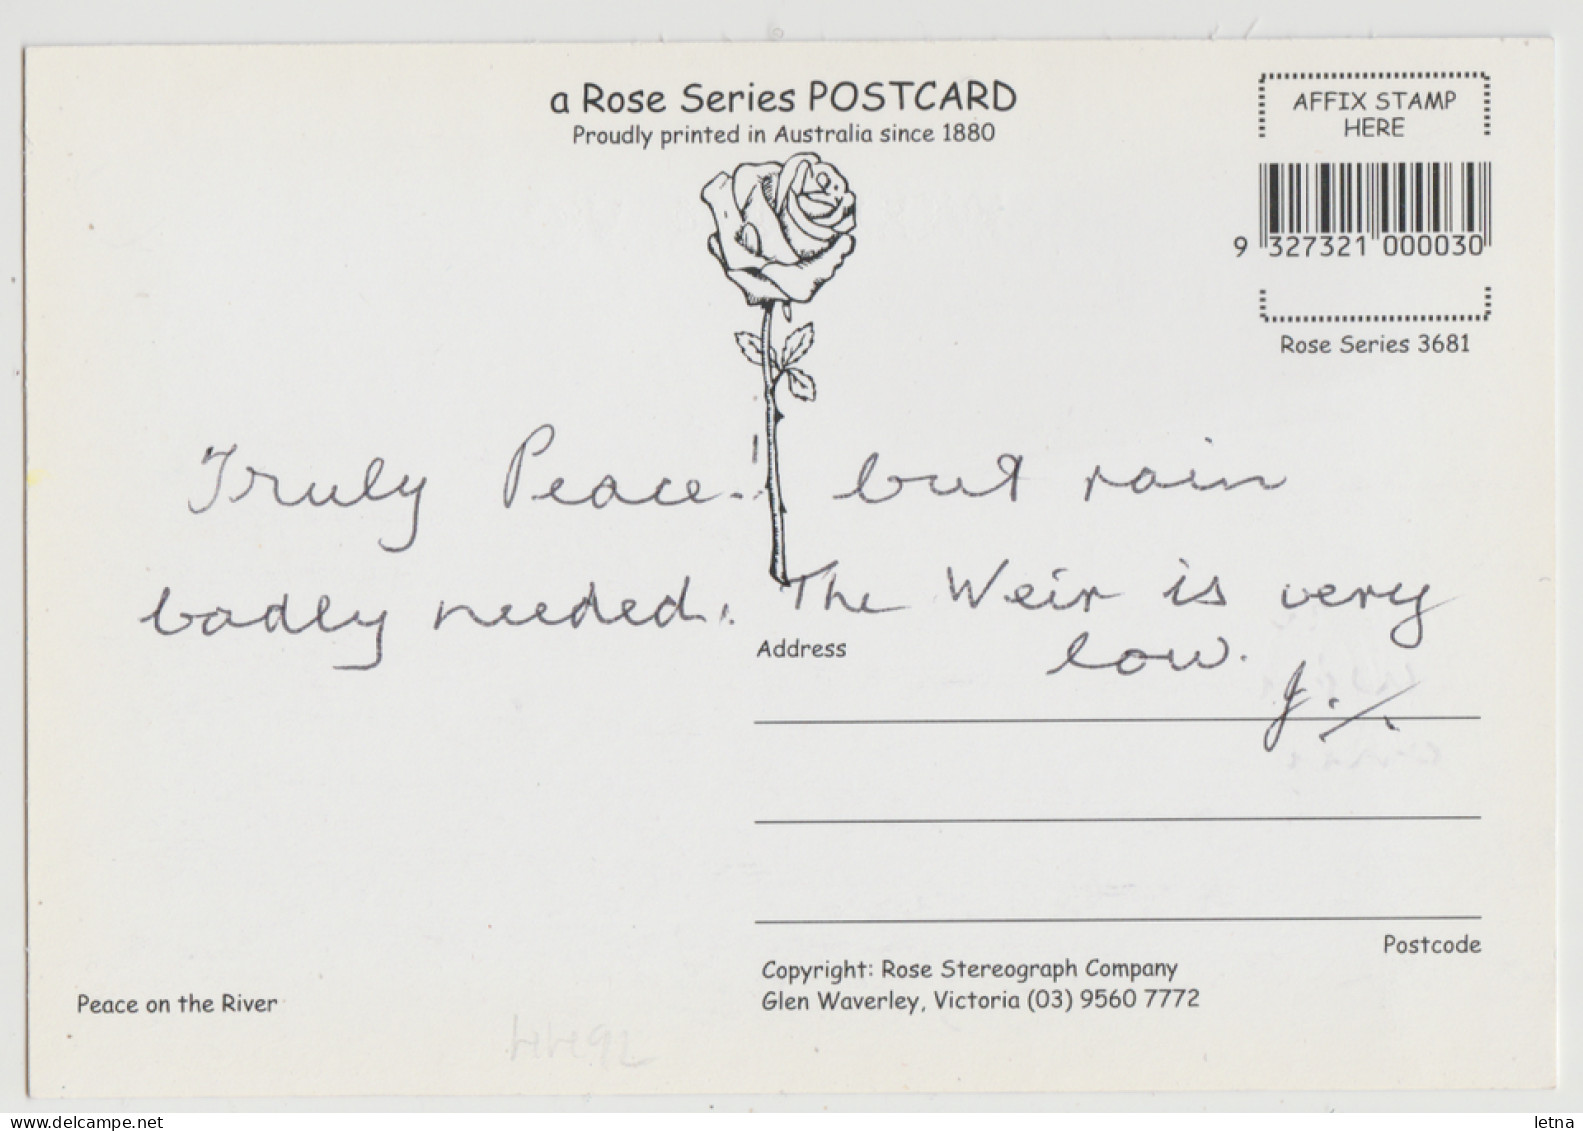 a Rose Series POSTCARD
Proudly printed in Australia since 1880
AFFIX STAMP
HERE
9 327321 000030
Rose Series 3681
Truly Peace. but rain
badly needed. The Weir is very
low.
J.
Address
Postcode
Copyright: Rose Stereograph Company
Glen Waverley, Victoria (03) 9560 7772
Peace on the River
www.delcampe.net
letna